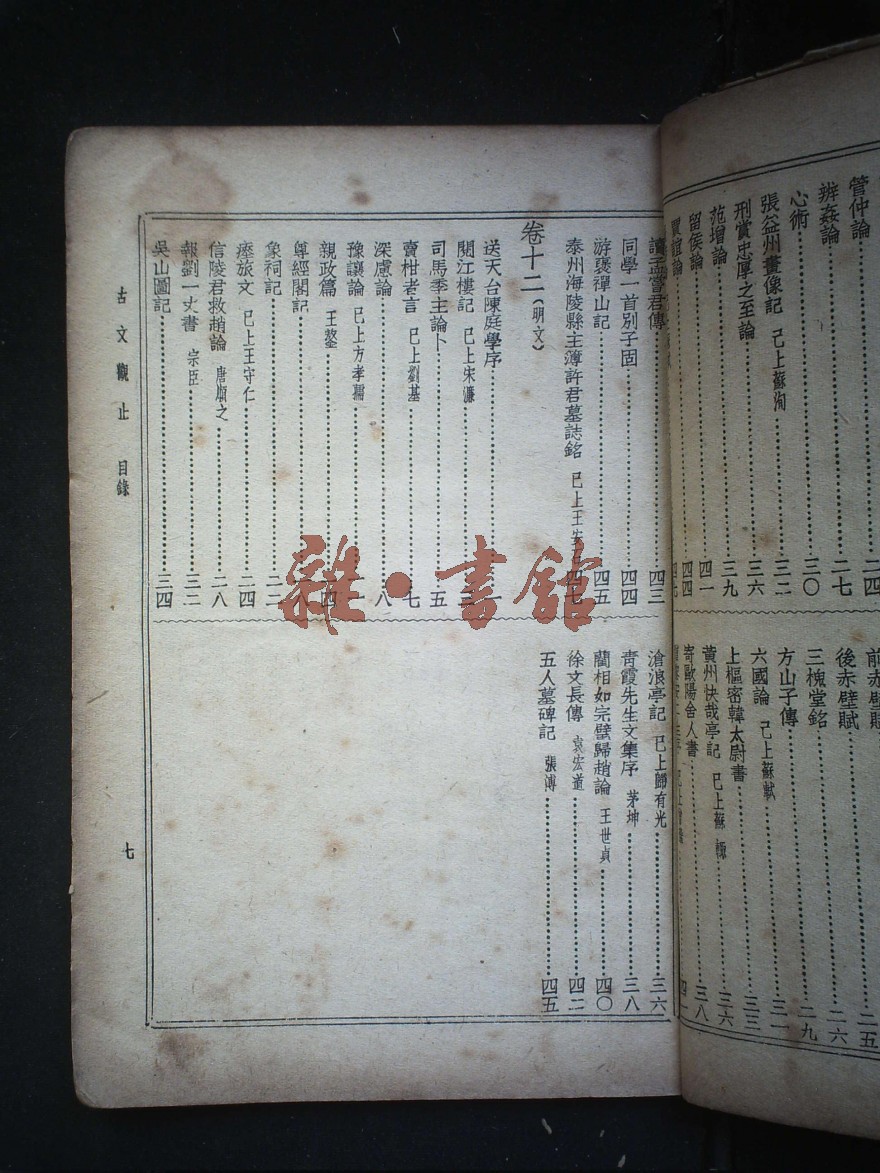 管仲論 二四
辨姦論 二七
心術 三〇
張益州畫像記 已上蘇洵 三二
刑賞忠厚之至論 三六
范增論 三九
留侯論 四一
賈誼論 四四
前赤壁賦 二五
後赤壁賦 二六
三槐堂銘 二九
方山子傳 三一
六國論 已上蘇軾 三三
上樞密韓太尉書 三六
黃州快哉亭記 已上蘇轍 三八
寄歐陽舍人書
讀孟嘗君傳 四三
同學一首別子固 四四
游褒禪山記 四五
泰州海陵縣主簿許君墓誌銘 已上王安石 四七
卷十二(明文)
送天台陳庭學序 一
閱江樓記 已上宋濂
司馬季主論卜 五
賣柑者言 已上劉基 七
深慮論 八
豫讓論 已上方孝孺
親政篇 王鏊 四
尊經閣記 八
象祠記 二二
瘞旅文 已上王守仁 二四
信陵君救趙論 唐順之 二八
報劉一丈書 宗臣 三二
吳山圖記 三四
滄浪亭記 已上歸有光 三六
青霞先生文集序 茅坤 三八
藺相如完璧歸趙論 王世貞 四〇
徐文長傳 袁宏道 四二
五人墓碑記 張溥 四五
古文觀止 目錄
七
雜·書館